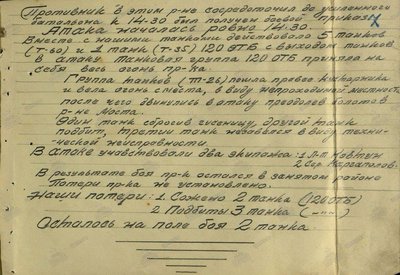 Противник в этом р-не сосредоточил до усиленного
батальона к 14-30 был получен боевой приказ.
Атака началась ровно 14.30.
Вместе с нашими танками действовало 5 танков
(Т-60) и 1 танк (Т-35) 120 ОТБ с выходом танков
в атаку танковая группа 120 ОТБ приняла на
себя весь огонь пр-ка.
Группа танков (Т-26) пошла правее кустарника
и вела огонь с места, в виду непроходимой местност.
после чего двинулись в атаку преодолев болото в
р-не моста.
Один танк сбросив гусеницу, другой танк
подбит, третий танк не завелся в виду техни-
ческой неисправности.
В атаке участвовали два экипажа: 1 Л-т Ковтун
2 Сер. Каргаполов.
В результате боя пр-к остался в занятом районе
Потери пр-ка не установлено.
Наши потери: 1. Сожжено 2 танка (120 ОТБ)
2. Подбиты 3 танка (—"—)
Осталось на поле боя 2 танка.